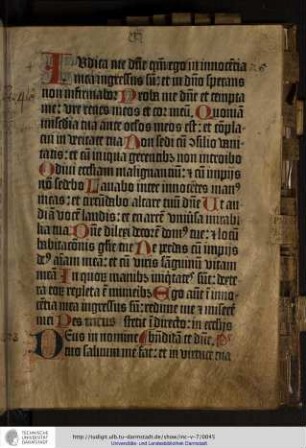 Iudica me dñe qm̃ ego in innocẽtia
mea ingressus sũ: et in dño sperans
non infirmabor Proba me dñe et tempta
me: vre renes meos et cor meũ. Quoniã
mĩa tua ante oclos meos est: et cõpla-
cui in veritate tua Non sedi cũ cõsilio vani-
tatis: et cũ iniqua gerentibꝰ non introibo
Odiui eccliam malignantiũ: et cũ impijs
nõ sedebo Lauabo inter innocẽtes manꝰ
meas: et circũdabo altare tuũ dñe Ut au-
diã vocẽ laudis: et enarrẽ vniũsa mirabi-
lia tua Dñe dilexi decorẽ domꝰ tue: et locũ
habitacõnis glorie tue Ne perdas cũ impijs
deꝰ aĩam meã: et cũ viris sãguinũ vitam
meã In quorũ manibꝰ iniqtates sũt: dexte-
ra eorũ repleta ẽ munibꝰ Ego aũt ĩ inno-
cẽtia mea ingressus sũ: redime me et miserẽ
mei Pes meus stetit ĩ directo: in ecclijs
Deus in nomine
tuo saluum me fac: et in virtute tua
TECHNISCHE
UNIVERSITÄT
DARMSTADT
http://tudigit.ulb.tu-darmstadt.de/show/inc-v-7/0045
Universitäts- und Landesbibliothek Darmstadt